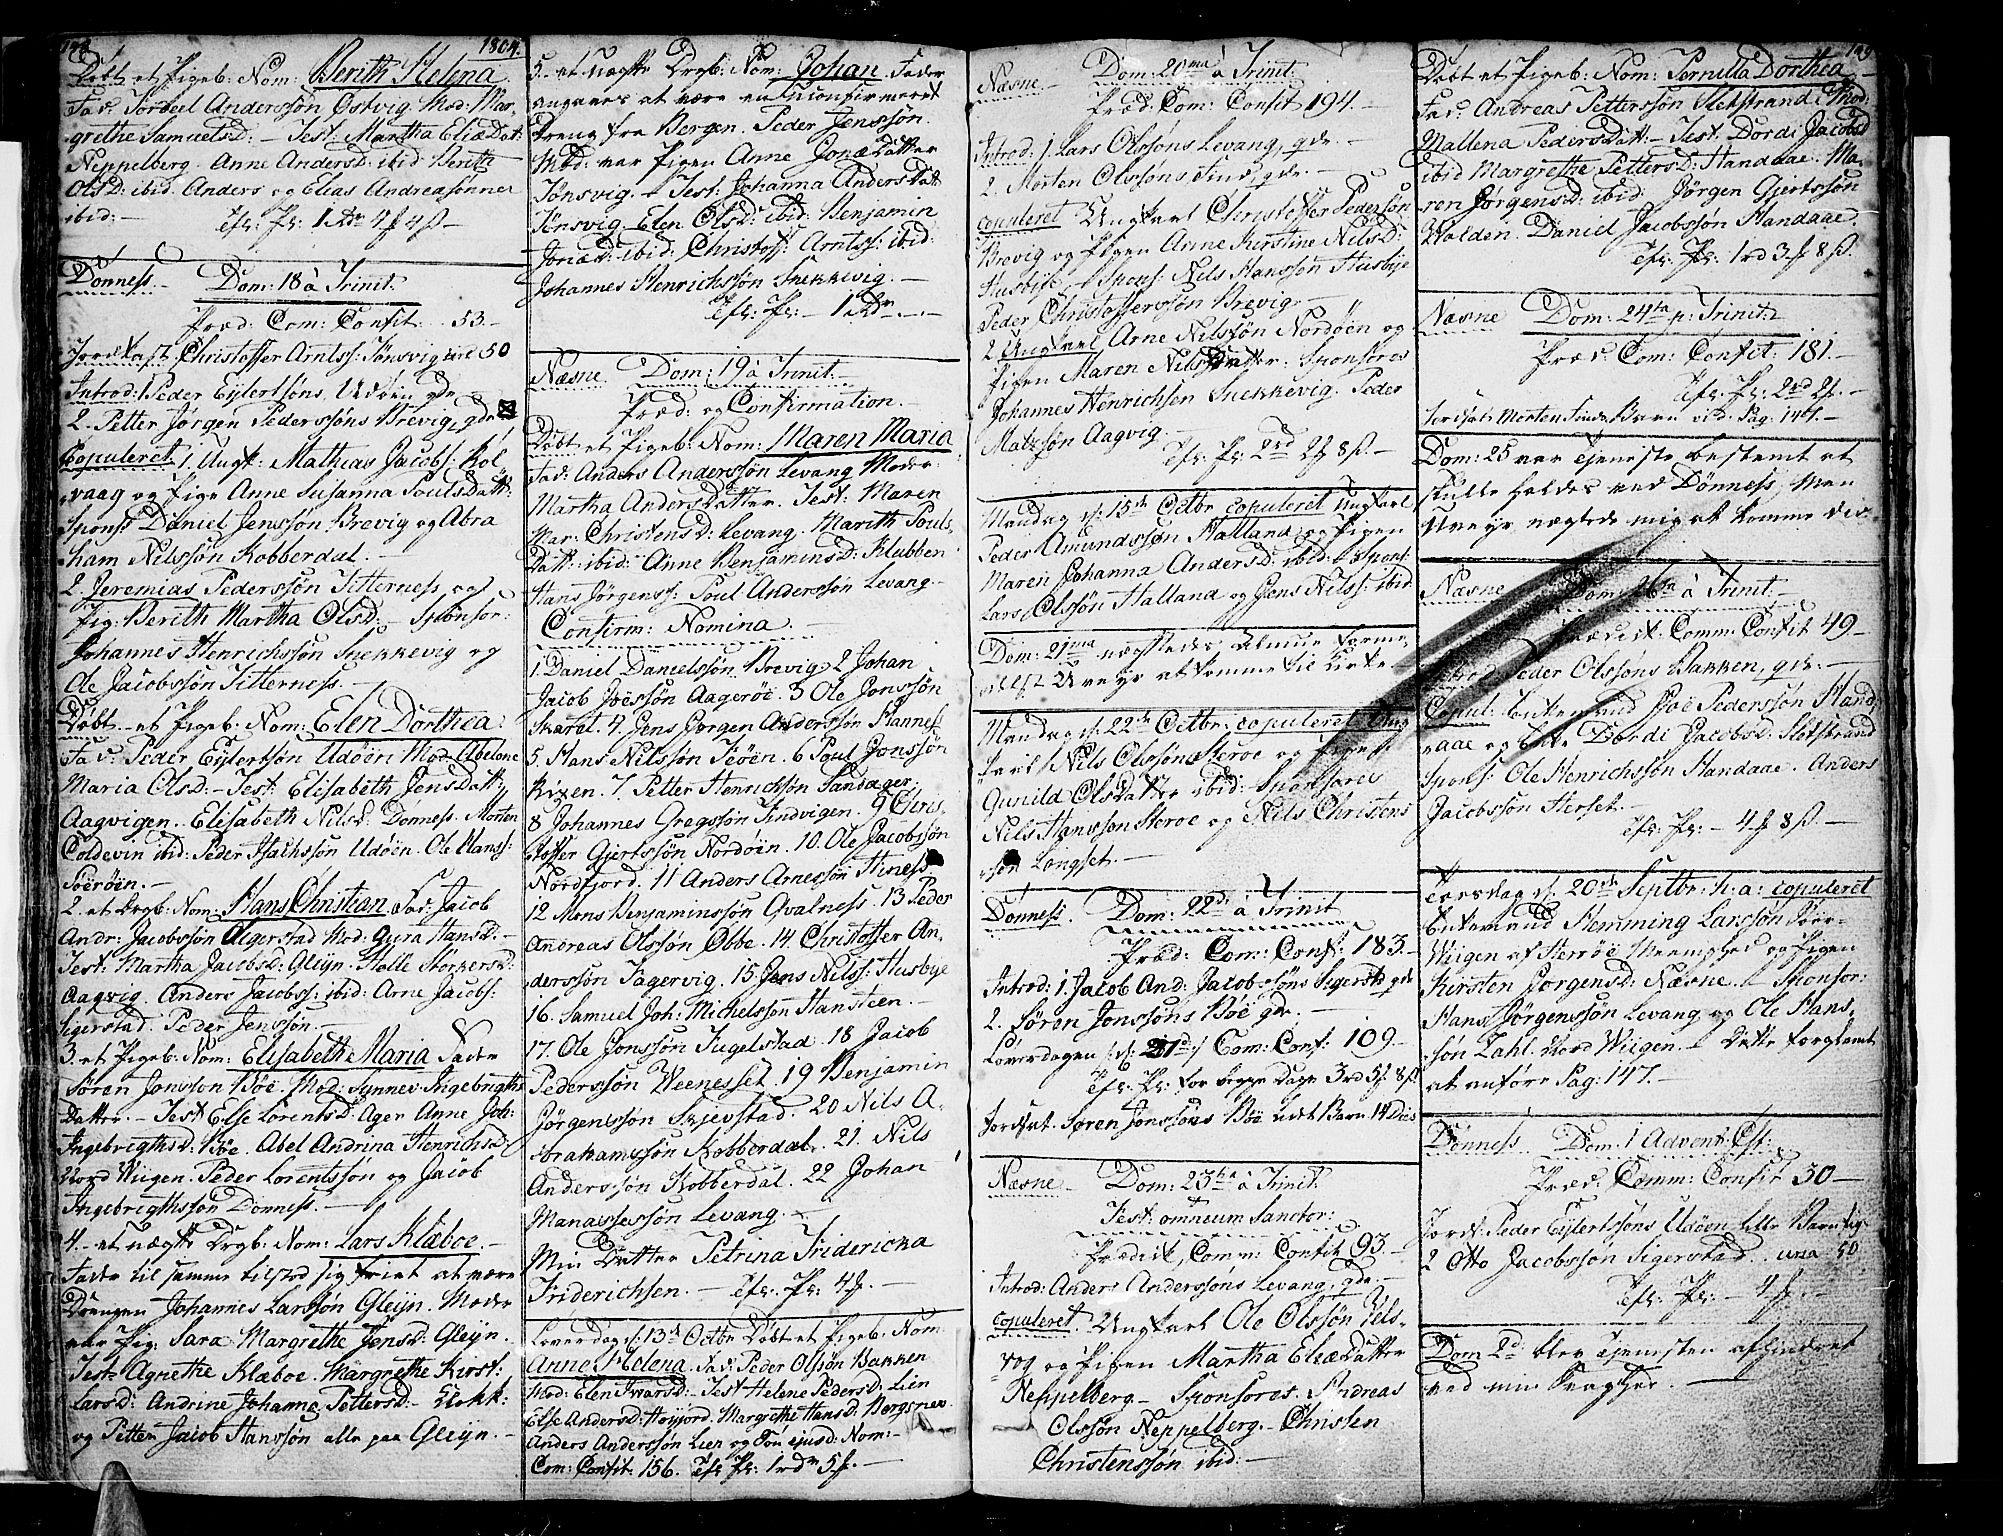 148 1804.
Døbt et Pigeb: Nom: Berith Helena
Fad: Tordeel Anderssøn Østvig. Mod: Mar-
grethe Samuelsd: - Test: Martha Eliæ Dat:
Neppelberg. Anne Andersd: ibid Berith
Olsd: ibid. Anders og Elias Andreasønner
ibid: -
Dønness. Dom: 18 à Trinit:
Præd: Com: Confit: 53.-
Jordkast Christoffer Arntss: Tønsvig 50
Introd: 1 Peder Eylertsøns Udøen gde
2. Petter Jørgen Pederssøns Brevig, gde
Copuleret 1. Ungk: Mathias Jacobs: Kol-
vaag og Pige Anne Susanna Poulsdatt:
Spons: Daniel Jenssøn Brevig og Abra
ham Nilssøn Kobberdal. -
2. Jeremias Pederssøn Titterness, og
Pig: Berith Martha Olsd: - Sponsor:
Johannes Henrichssøn Snekkevig og
Ole Jacobssøn Titterness. -
Døbt - et Pigeb: Nom: Elen Dorthea.
Fad: Peder Eylertsøn Udøen Mod. Abelone
Maria Olsd: - Test: Elisabeth Jensdatt:
Aagvigen. Elisabeth Nilsd: Dønness. Morten
Coldevin ibid: Peder Isachssøn Udøen. Ole Hanss:
Sørøen. -
2. et Drgb: Nom: Hans Christian Fad: Jacob
Andr: Jacobssøn Algerstad Mod: Gura Hansd: -
Test: Martha Jacobsd: Gleyn. Helle Storkersd:
Aagvig. Anders Jacobss: ibid: Arne Jacobs:
Sigerstad. Peder Jenssøn. -
3. et Pigeb: Nom: Elisabeth Maria Fader
Søren Jonssøn Bøe. Mod: Synnev Ingebrigths
Datter. - Test: Else Lorentsd: Ager Anne Joh:
Ingebrigthsd: Bøe. Abel Andrina Henrichsd:
Nord Wiigen. Peder Lorentssøn og Jacob
Ingebrigthssøn Dønness. -
4. - et uægte Drgb: Nom: Lars Klæboe. -
Fader til samme tilstod sig friet at være
Drengen Johannes Larssøn Gleyn. Moder
var Pig: Sara Margrethe Jensd: Gleyn.
Test: Agnethe Klæboe. Margrethe Kirst:
Larsd: Andrine Johanne Pettersd: -
og Petter Jacob Hanssøn alle paa Gleyn. -
5. et uægte Drgb: Nom: Johan. Fader
angaves at være en Uconfirmeret
Dreng fra Bergen. Peder Jenssøn.
Mod: var Pigen Anne Jonæ Datter
Tønsvig. Test: Johanna Anders Datt
Tønsvig. Elen Olsd: ibid: Benjamin
Jonæd: ibid: Christoff: Arntss: ibid:
Johannes Henrichssøn Snekkevig. -
Næsne Dom: 19 à Trinit: -
Præd: og Confirmation. -
Døbt et Pigeb: Nom: Maren Maria
Fad: Anders Anderssøn Levang Moder:
Martha Anders Datter. Test: Maren
Mar: Christensd: Levang. Marith Pouls-
Datt: ibid: Anne Benjaminsd: Klubben
Hans Jørgenss: Poul Anderssøn Levang. -
Confirm: Nomina. -
1. Daniel Danielssøn Brevig. 2 Johan
Jacob Joëssøn Aagerøe. 3 Ole Jonssøn
Skaret. 4. Jens Jørgen Anderssøn Hanness
5. Hans Nilssøn Feøen. 6 Poul Jonssøn
Kixen. 7. Petter Henrichssøn Sandager.
8 Johannes Gregssøn Findvigen. 9 Chris-
stoffer Gjertssøn Nordøen. 10. Ole Jacobssøn
Nordfjord. 11 Anders Arnessøn Hiness
12 Mons Benjaminssøn Qvalness. 13 Peder
Andreas Olssøn Øbbe. 14. Christoffer An-
derssøn Fagervig. 15. Jens Nilss: Husbye
16. Samuel Joh: Michelssøn Hansteen. -
17. Ole Jonssøn Fugelstad. 18 Jacob
Pederssøn Weenesset. 19 Benjamin
Jørgenssøn Skjevstad. 20 Nils A-
brahamssøn Kobberdal. 21. Nils
Anderssøn Kobberdal. 22 Johan
Manassessøn Levang. -
Min Datter Petrina Fridericka
Friderichsen. -
Løverdag d: 13de Octbr. Døbt et Pigeb: Nom.
Anne Helena. Fad: Peder Olssøn Bakken
Mod: Elen Ivarsd: - Test Helene Pedersd: Lien
Else Andersd: Høyjord. Margrethe Hansd:
Anders Anderssøn Lien og Søn ejusd: Nom: -
Com: Confit: 156.
Næsne. - Dom: 20ma à Trinit:
Præd: Com: Confit 194. -
Introd: 1 Lars Olssøns Levang, gde. -
2. Morten Olssøns Sund, gde. -
Copuleret Ungkarl Christoffer Pederssøn
Brevig og Pigen Anne Kirstine Nilsd:
Husbye. Spons: Nils Hanssøn Husbye
Peder Christofferssøn Brevig. -
2. Ungkarl Arne Nilssøn Nordøen og
Pigen Maren Nilsdatter. Sponsores
Johannes Henrichsen Snekkevig. Peder
Matzsøn Aagvig. -
Mandag d: 15de Octbr. copuleret Ungkarl
Peder Amundssøn Halland og Pigen
Maren Johanna Andersd: ibid: Spons:
Lars Olssøn Halland og Jens Nilss: ibid
Dom: 21ma nægtedes Almue forme-
delst Uveyr at komme til Kirke
Mandag d: 22de Octbr: copuleret Ung-
karl Nils Olssøn Sterøe og Pigen
Gunild Olsdatter ibid: Sponsores
Nils Hanssøn Sterøe og Nils Christens
søn Langset. -
Dønness. Dom: 22de à Trinit
Præd: Com: Conf: 183. -
Introd: 1. Jacob And: Jacobssøns Sigerstd gde
2. Søren Jonssøns Bøe gde. -
Løverdagen /: d: 21de :/ Com: Conf: 109. -
for begge Dage 3 rd 5 8
Jordfæst. Søren Jonssøns Bøe Lidet Barn 14 Dies
Næsne Dom: 23tia à Trinit:
Fest: omneum Sanctor:
Prædik, Com: Confit 93. -
Introd: Anders Anderssøns Levang, gde. -
Copuleret. Ungkarl Ole Olssøn Vels-
vog og Pigen Martha Eliæ Datter
Neppelberg - Sponsores. Andreas
Olssøn Neppelberg. - Christen
Christenssøn ibid: -
149
Døbt et Pigeb: Nom: Pernilla Dorthea
Fad: Andreas Petterssøn Sletstrand Mod:
Mallena Pedersdatt: - Test: Dordi Jacobsd
ibid Margrethe Pettersd: Handaae. Ma-
ren Jørgensd: ibid: Jørgen Gjertssøn
Walden. Daniel Jacobssøn Handaae.
Næsne Dom: 24ta p: Trinit:
Præd: Com: Confit: 181. -
Jordfæst: Morten Barn vid: Pag: 147. -
Dom: 25 var Tjeneste bestemt at
skulle holdes ved Dønness, Men
Uveyr nægtede mig at komme did. -
Næsne Dom: 26ta à Trinit. -
Prædik. Comm: Confit 49 -
Introd: Peder Olssøns Bakken, gde. -
Copul: Enkemand Joë Pederssøn Hand-
aae og Enke Dordi Jacobsd: Sletstrand
Spons: Ole Henrichssøn Handaae. Anders
Jacobssøn Herset. -
Torsdag d: 20de Septbr: h: a: copuleret
Enkemand Hemming Larssøn
Wiigen af Herrøe Meenighed og Pigen
Kirsten Jørgensd: Næsne. - Sponsor:
Hans Jørgenssøn Levang og Ole Hans-
søn Zahl. Nord Wiigen. Dette forglemt
at anføre Pag: 147. -
Dønness Dom: 1 Advent: Est:
Præd: Comm: Confit 30 -
Jordf: Peder Eylertssøns Udøen lille Barn
2 Otto Jacobssøn Sigerstad. 50.
Dom 2d: blev Tjenesten afhindret
ved min Svaghed. -